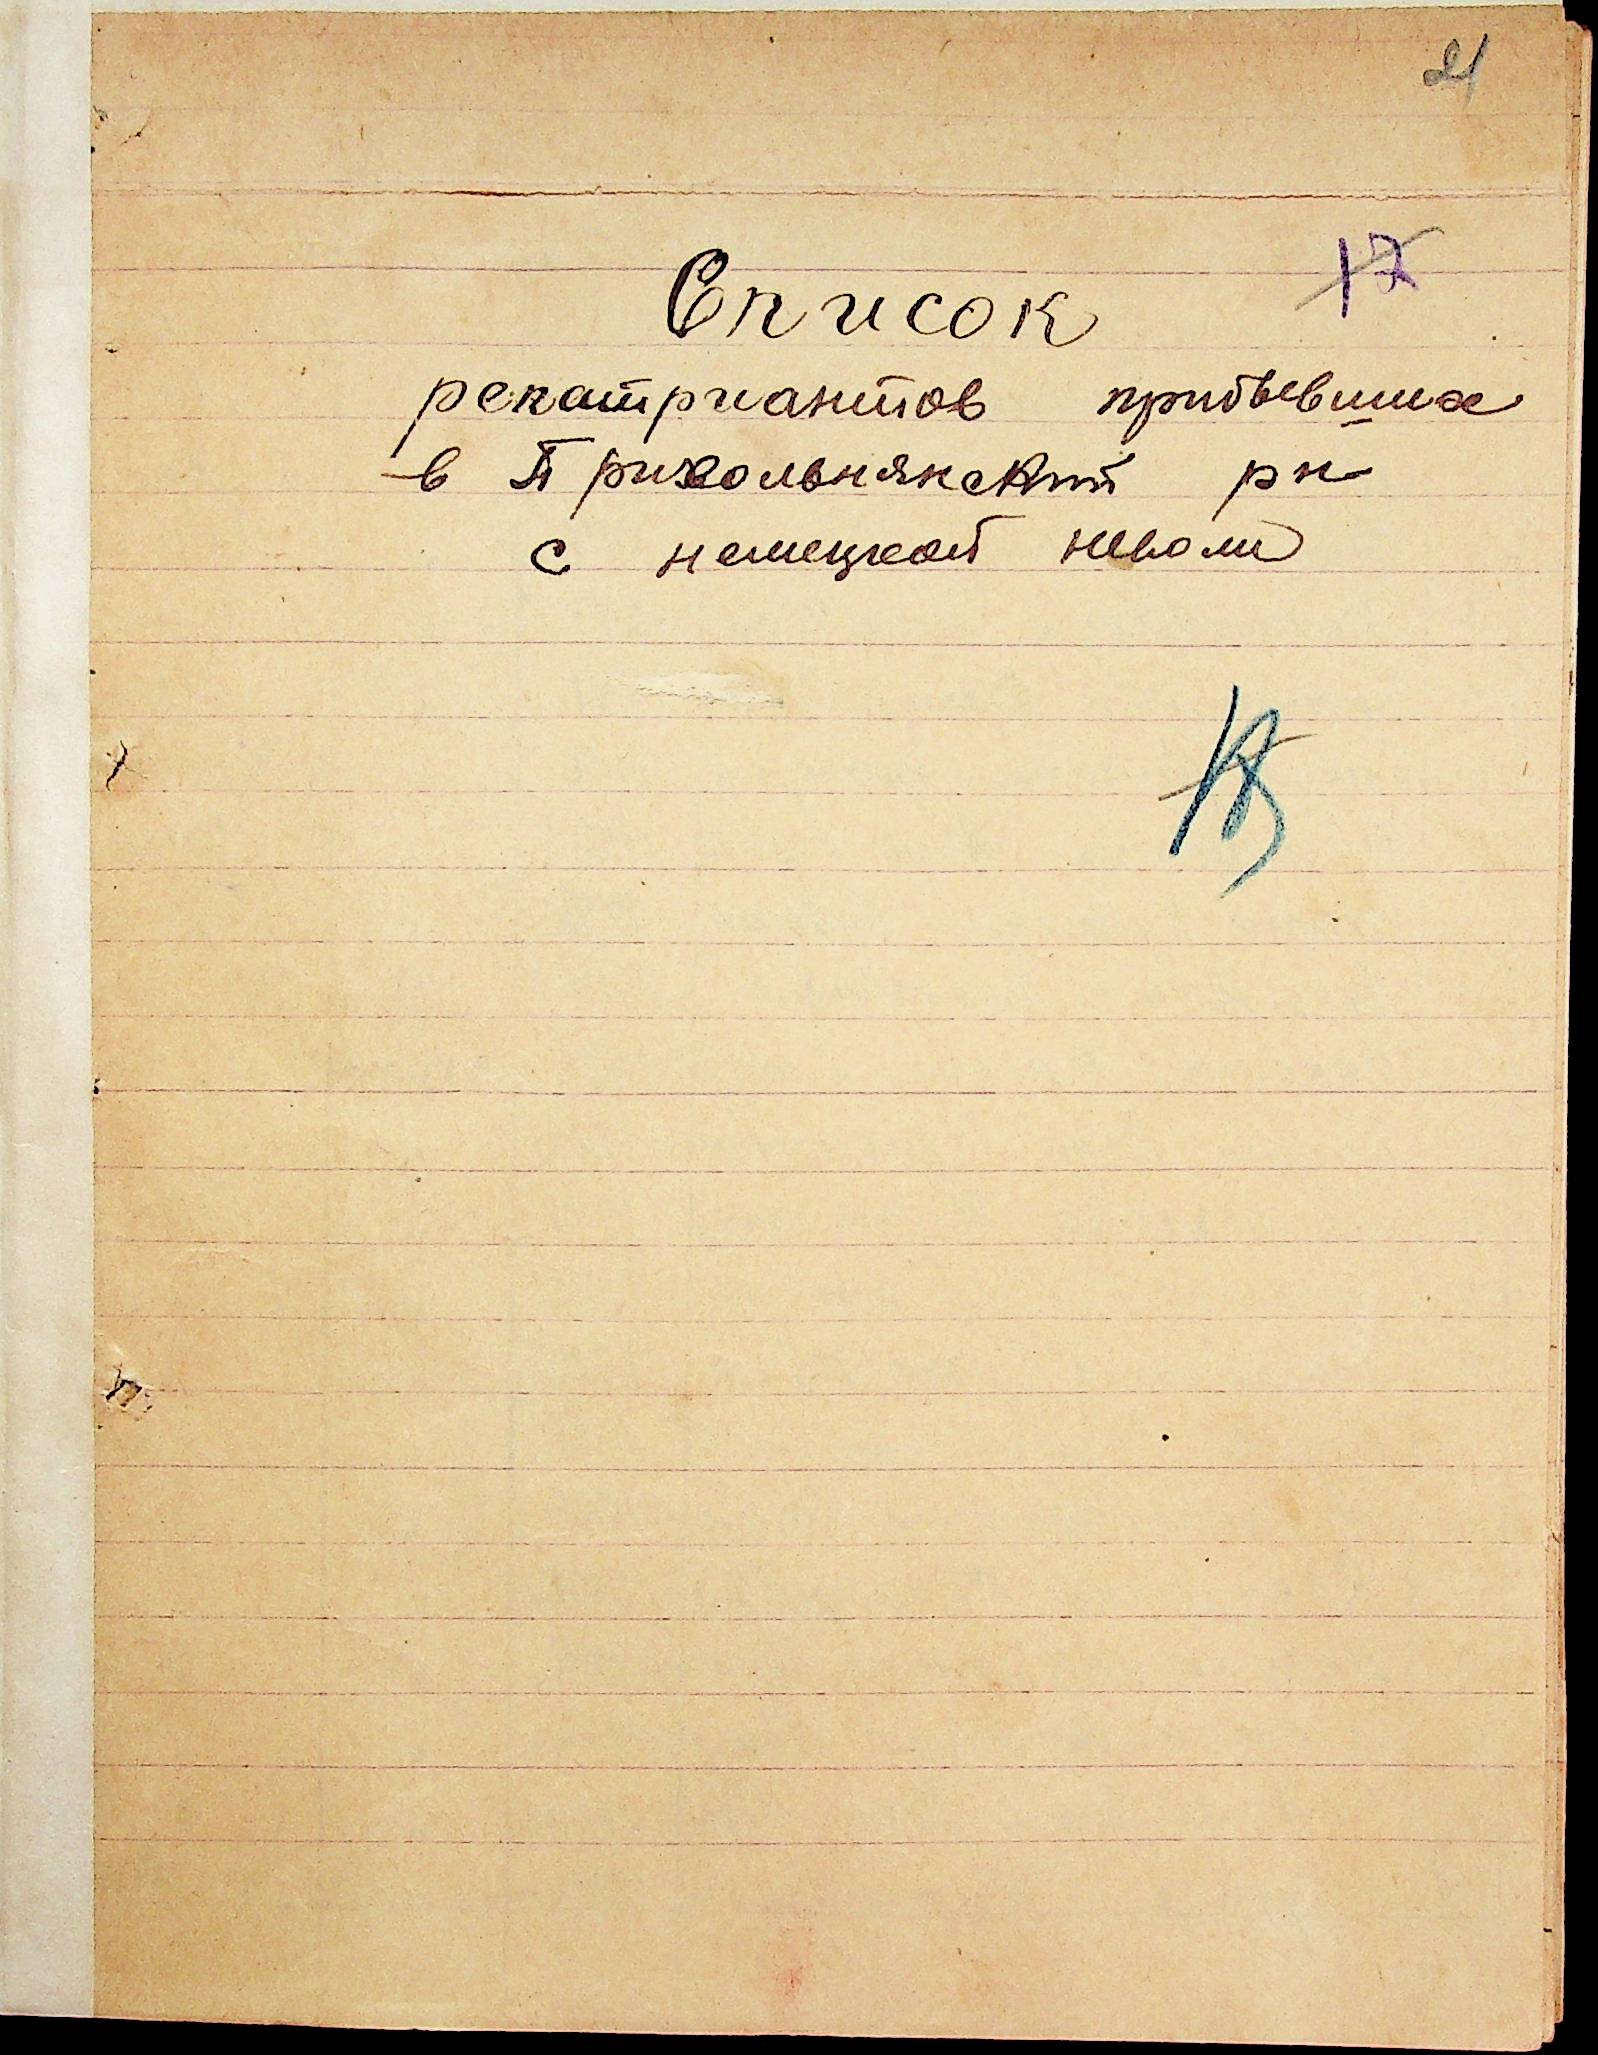 21
17
Список
репатриантов прибывших
в Прикольнянский рн
с немецкой неволи